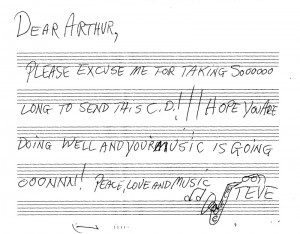 DEAR ARTHUR,
PLEASE EXCUSE ME FOR TAKING SOOOOOO
LONG TO SEND THIS C.D.!!! HOPE YOU ARE
DOING WELL AND YOUR MUSIC IS GOING
OOONNN! PEACE, LOVE AND MUSIC
STEVE